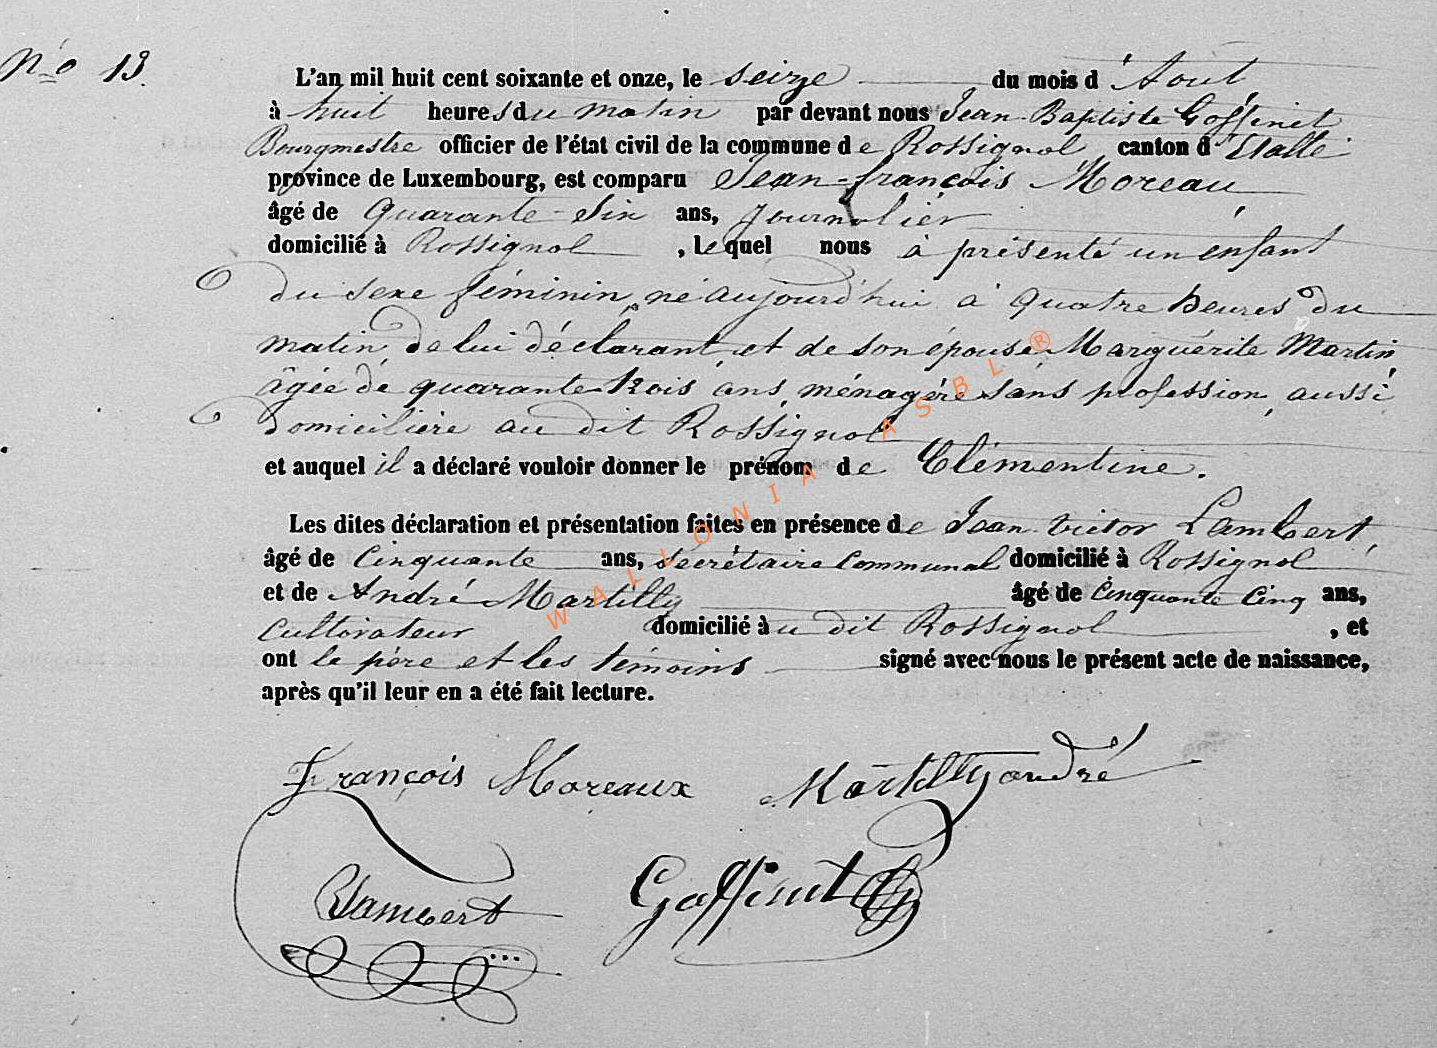 No 13.
L'an mil huit cent soixante et onze, le seize du mois d'Aout
à huit heures du matin par devant nous Jean Baptiste Goffinet
Bourgmestre officier de l'état civil de la commune de Rossignol canton d'Etalle
province de Luxembourg, est comparu Jean-françois Moreau,
âgé de Quarante-Six ans, Journalier
domicilié à Rossignol, lequel nous à présenté un enfant
du sexe féminin, né aujourd'hui à quatre heures du
matin, de lui déclarant et de son épouse Marguérite Martin
âgée de quarante trois ans, ménagére sans profession, aussi
domiciliére au dit Rossignol
et auquel il a déclaré vouloir donner le prénom de Clémentine.
Les dites déclaration et présentation faites en présence de Jean Victor Lambert,
âgé de Cinquante ans, Sécrétaire Communal domicilié à Rossignol
et de André Martilly âgé de Cinquante Cinq ans,
Cultivateur domicilié au dit Rossignol, et
ont le père et les témoins signé avec nous le présent acte de naissance,
après qu'il leur en a été fait lecture.
François Moreaux Martilly andré
Lambert Goffinet
WALLONIA ASBL ®